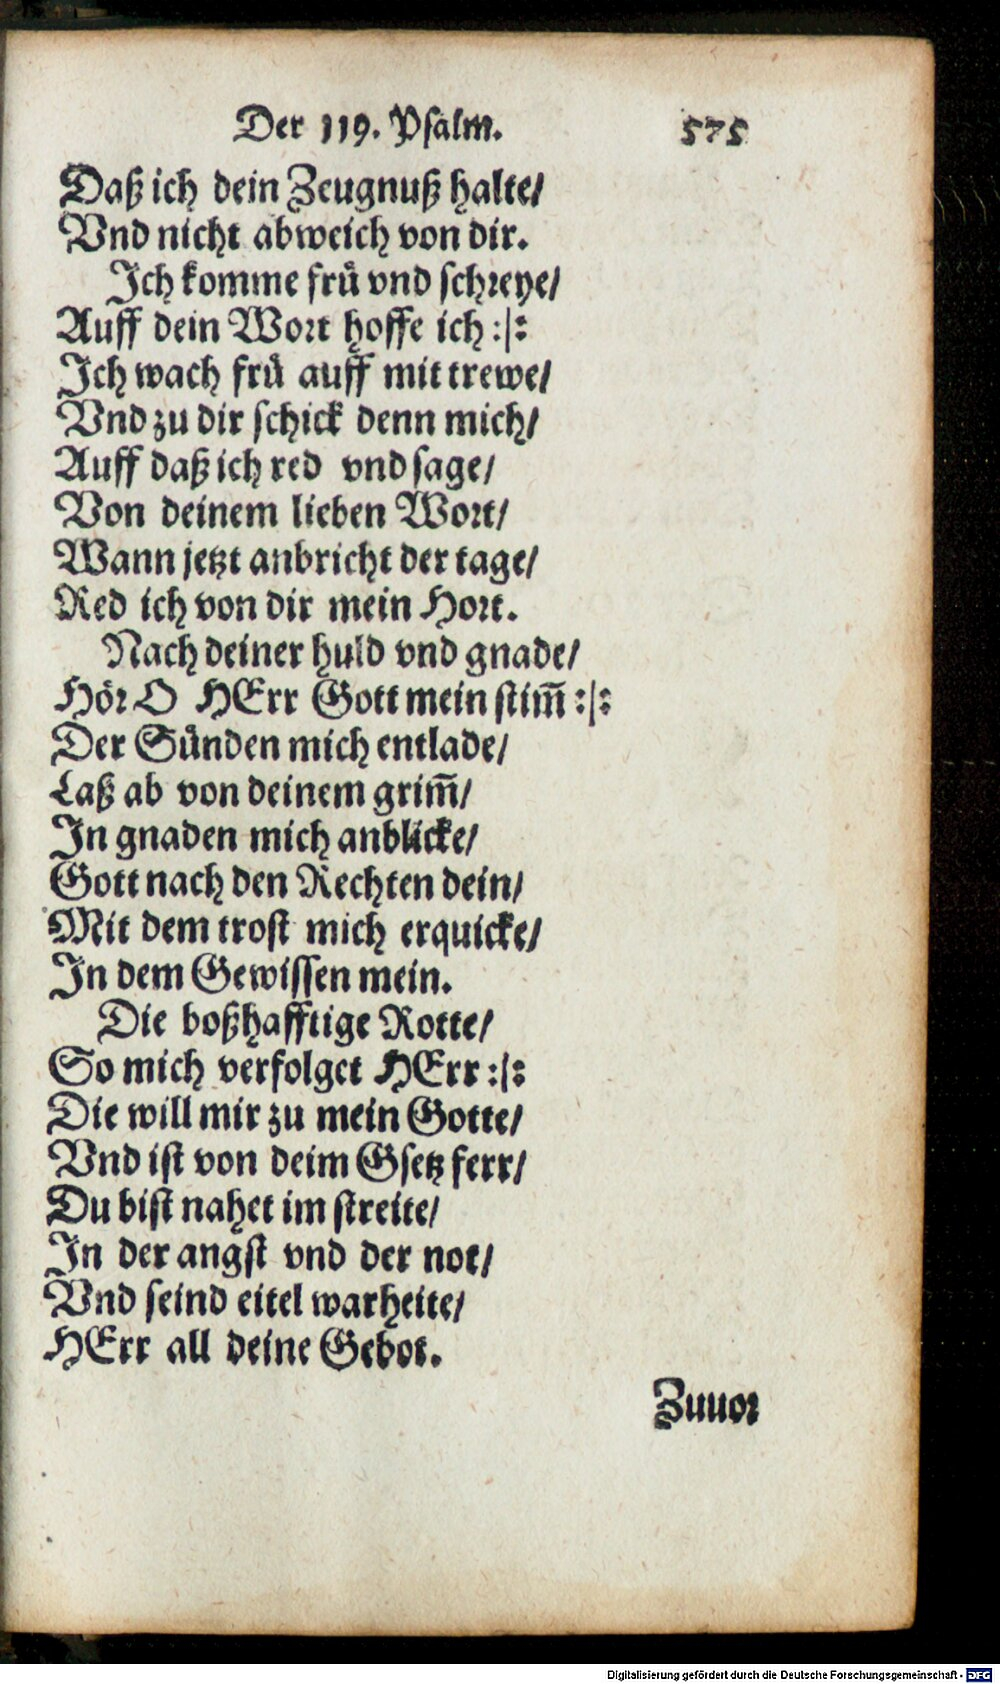 Der 119. Psalm. 575
Daß ich dein Zeugnuß halte/
Vnd nicht abweich von dir.
Ich komme frů vnd schreye/
Auff dein Wort hoffe ich :|:
Ich wach frů auff mit trewe/
Vnd zu dir schick denn mich/
Auff daß ich red vnd sage/
Von deinem lieben Wort/
Wann jetzt anbricht der tage/
Red ich von dir mein Hort.
Nach deiner huld vnd gnade/
Hör O HErr Gott mein stim̃ :|:
Der Sünden mich entlade/
Laß ab von deinem grim̃/
In gnaden mich anblicke/
Gott nach den Rechten dein/
Mit dem trost mich erquicke/
In dem Gewissen mein.
Die boßhafftige Rotte/
So mich verfolget HErr :|:
Die will mir zu mein Gotte/
Vnd ist von deim Gsetz ferr/
Du bist nahet im streite/
In der angst vnd der not/
Vnd seind eitel warheite/
HErr all deine Gebot.
Zuuor
Digitalisierung gefördert durch die Deutsche Forschungsgemeinschaft - DFG